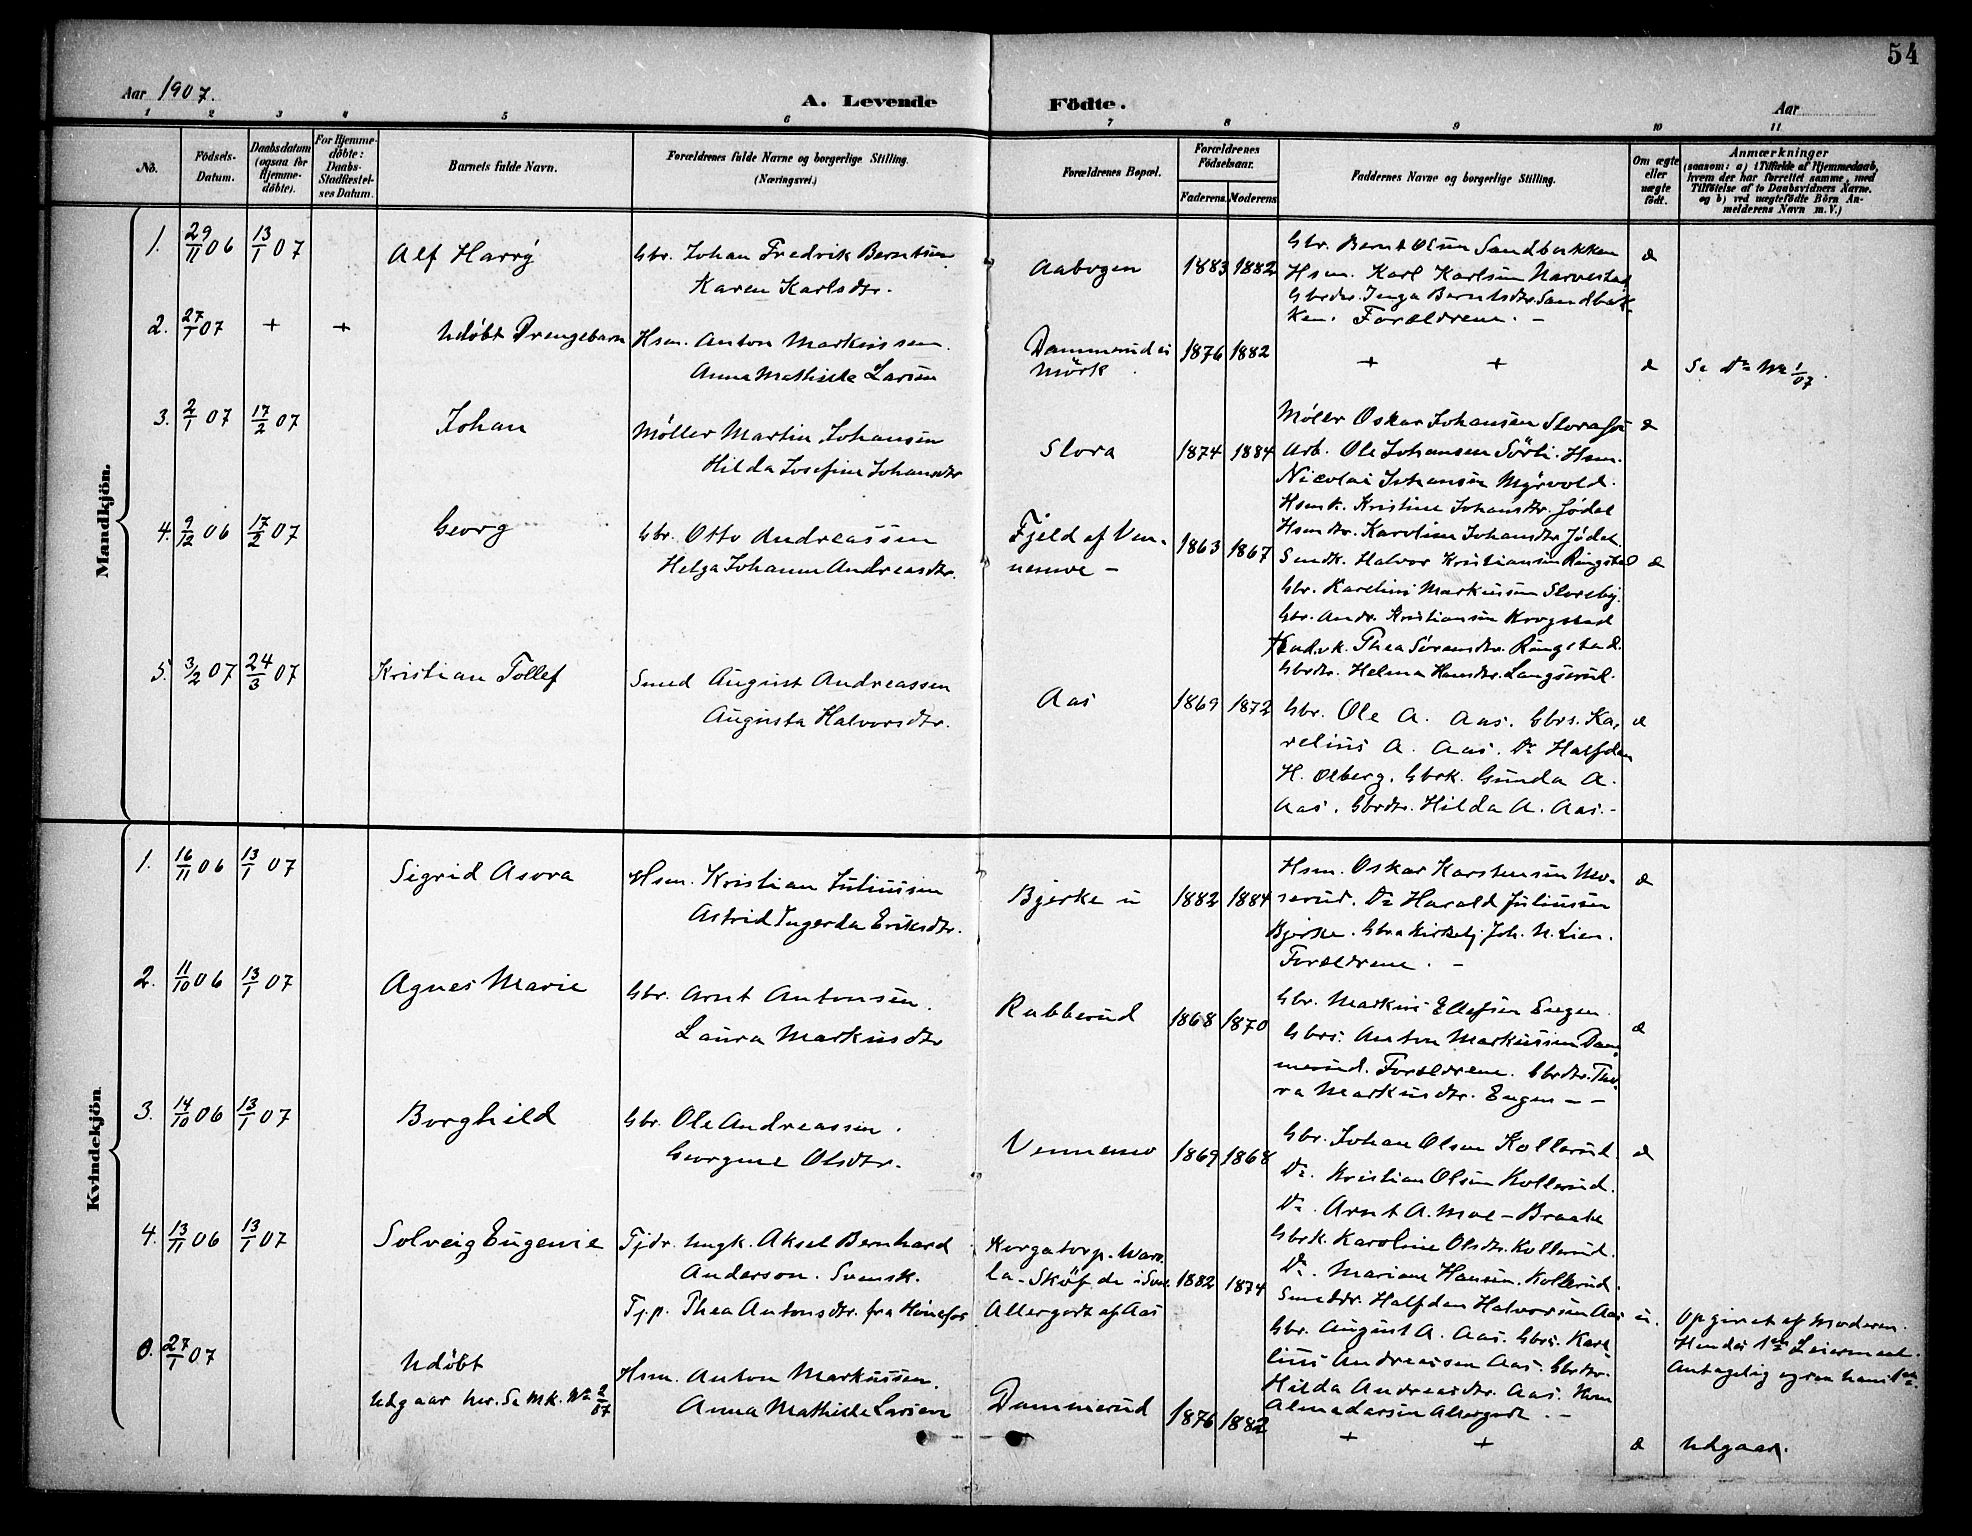 54
Aar 1907.
A. Levende Födte.
Aar
1 2 3 4 5 6 7 8 9 10 11
No.
Födsels-Datum.
Daabsdatum (ogsaa for Hjemme-döbte).
For Hjemme-döbte: Daabs-Stadfæstel-ses Datum.
Barnets fulde Navn.
Forældrenes fulde Navne og borgerlige Stilling. (Næringsvei.)
Forældrenes Bopæl.
Forældrenes Födselsaar.
Faderens. Moderens.
Faddernes Navne og borgerlige Stilling.
Om ægte eller uægte født.
Anmærkninger
(saasom: a) i Tilfælde af Hjemmedaab,
hvem der har forrettet samme, med
Tilföielse af to Daabsvidners Navne.
og b) ved uægtefödte Börn An-
melderens Navn m. V.)
Mandkjön.
1. 29/11 06 13/1 07 Alf Harry
Gbr. Johan Fredrik Berntsen
Karen Karlsdtr.
Aabogen 1883 1882
Gbr. Bernt Olsen Sandbakken
Hsm. Karl Karlsen Narvestad
Gbrdtr. Inga Berntsdtr. Sandbak-
ken. Forældrene. -
æ
2. 27/1 07 + + Udøbt Drengebarn
Hsm. Anton Markussen.
Anna Mathilde Larsen
Dammerud
Mörk
1876 1882 + + æ
Se Do No 1/07.
3. 2/1 07 17/2 07 Johan
Møller Martin Johansen
Hilda Josefine Johansdtr
Slora 1874 1884
Møller Oskar Johansen Slorafos
Arb. Ole Johansen Sörli. Hsm.
Nicolai Johansen Myrvold.
Hsmk. Kristine Johansdtr. Jödal
Hsmdtr. Karoline Johansdtr. Jödal.
æ
4. 9/12 06 17/2 07 Georg
Gbr. Otto Andreassen
Helga Johanne Andreasdtr.
Fjeld af Ven-
nemoe -
1863 1867
Smedk. Halvor Kristiansen Ringstad
Gbr. Karelius Markussen Sloreby.
Gbr. Andr. Kristiansen Krogstad
Thea Sørensdtr. Ringstad.
Gbrdtr. Helma Hansdtr. Langserud.
æ
5. 3/2 07 24/3 07 Kristian Tollef
Smed August Andreassen
Augusta Halvorsdtr.
Aas 1869 1872
Gbr. Ole A. Aas. Gbrs. Ka-
relius A. Aas. Do Halfdan
H. Olberg. Gbrk. Gunda A.
Aas. Gbrdtr. Hilda A. Aas.-
æ
Kvindekjön
1. 16/11 06 13/1 07 Sigrid Asora
Hsm. Kristian Juliussen
Astrid Ingerda Eriksdtr.
Bjerke 1882 1884
Hsm. Oskar Karstensen Mo-
serud. Do Harald Juliussen
Bjerke. Gbr. Kirkebj. Joh. N. Lien.
Forældrene. -
æ
2. 11/10 06 13/1 07 Agnes Marie
Gbr. Arnt Antonsen.
Laura Markusdtr
Rabberud 1868 1870
Gbr. Markus Ellefsen Engen.
Gbrs. Anton Markussen Dam-
merud. Forældrene. Gbrdtr. Tho-
ra Markusdtr. Engen - -
æ
3. 14/10 06 13/1 07 Borghild
Gbr. Ole Andreassen.
Georgine Olsdtr.
Vennemo 1869 1868
Gbr. Johan Olsen Kollerud.
Do. Kristian Olsen Kollerud.
Do. Arnt A. Moe - Braate
Gbrk. Karoline Olsdtr. Kollerud.
Do. Mariane Hansen. Kollerud.
æ
4. 13/11 06 13/1 07 Solveig Eugenie
Tjdr. Ungk. Aksel Bernhard
Anderson. Svensk.
Tj.p. Thea Antonsdtr. fra Hönefos
Korgatorp. Wars
la-Sköfde i Sve.
Allergodt af Aas
1882 1874
Smeddr. Halfdan Halvorsen Aas
Gbr. August A. Aas. Gbrs. Kare
lius Andreassen Aas. Gbrdtr.
Hilda Andreasdtr. Aas.
Alma Larsen Allergodt. -
u.
Opgivet af Moderen.
Hendes 1ste Leiermaal.
Antagelig ogsaa hans 1ste.
0. 27/1 07 Udøbt
Udgaar her. Se M.K. No 2/07
Hsm. Anton Markussen.
Anna Mathilde Larsen
Dammerud 1876 1882 + + æ Udgaar.